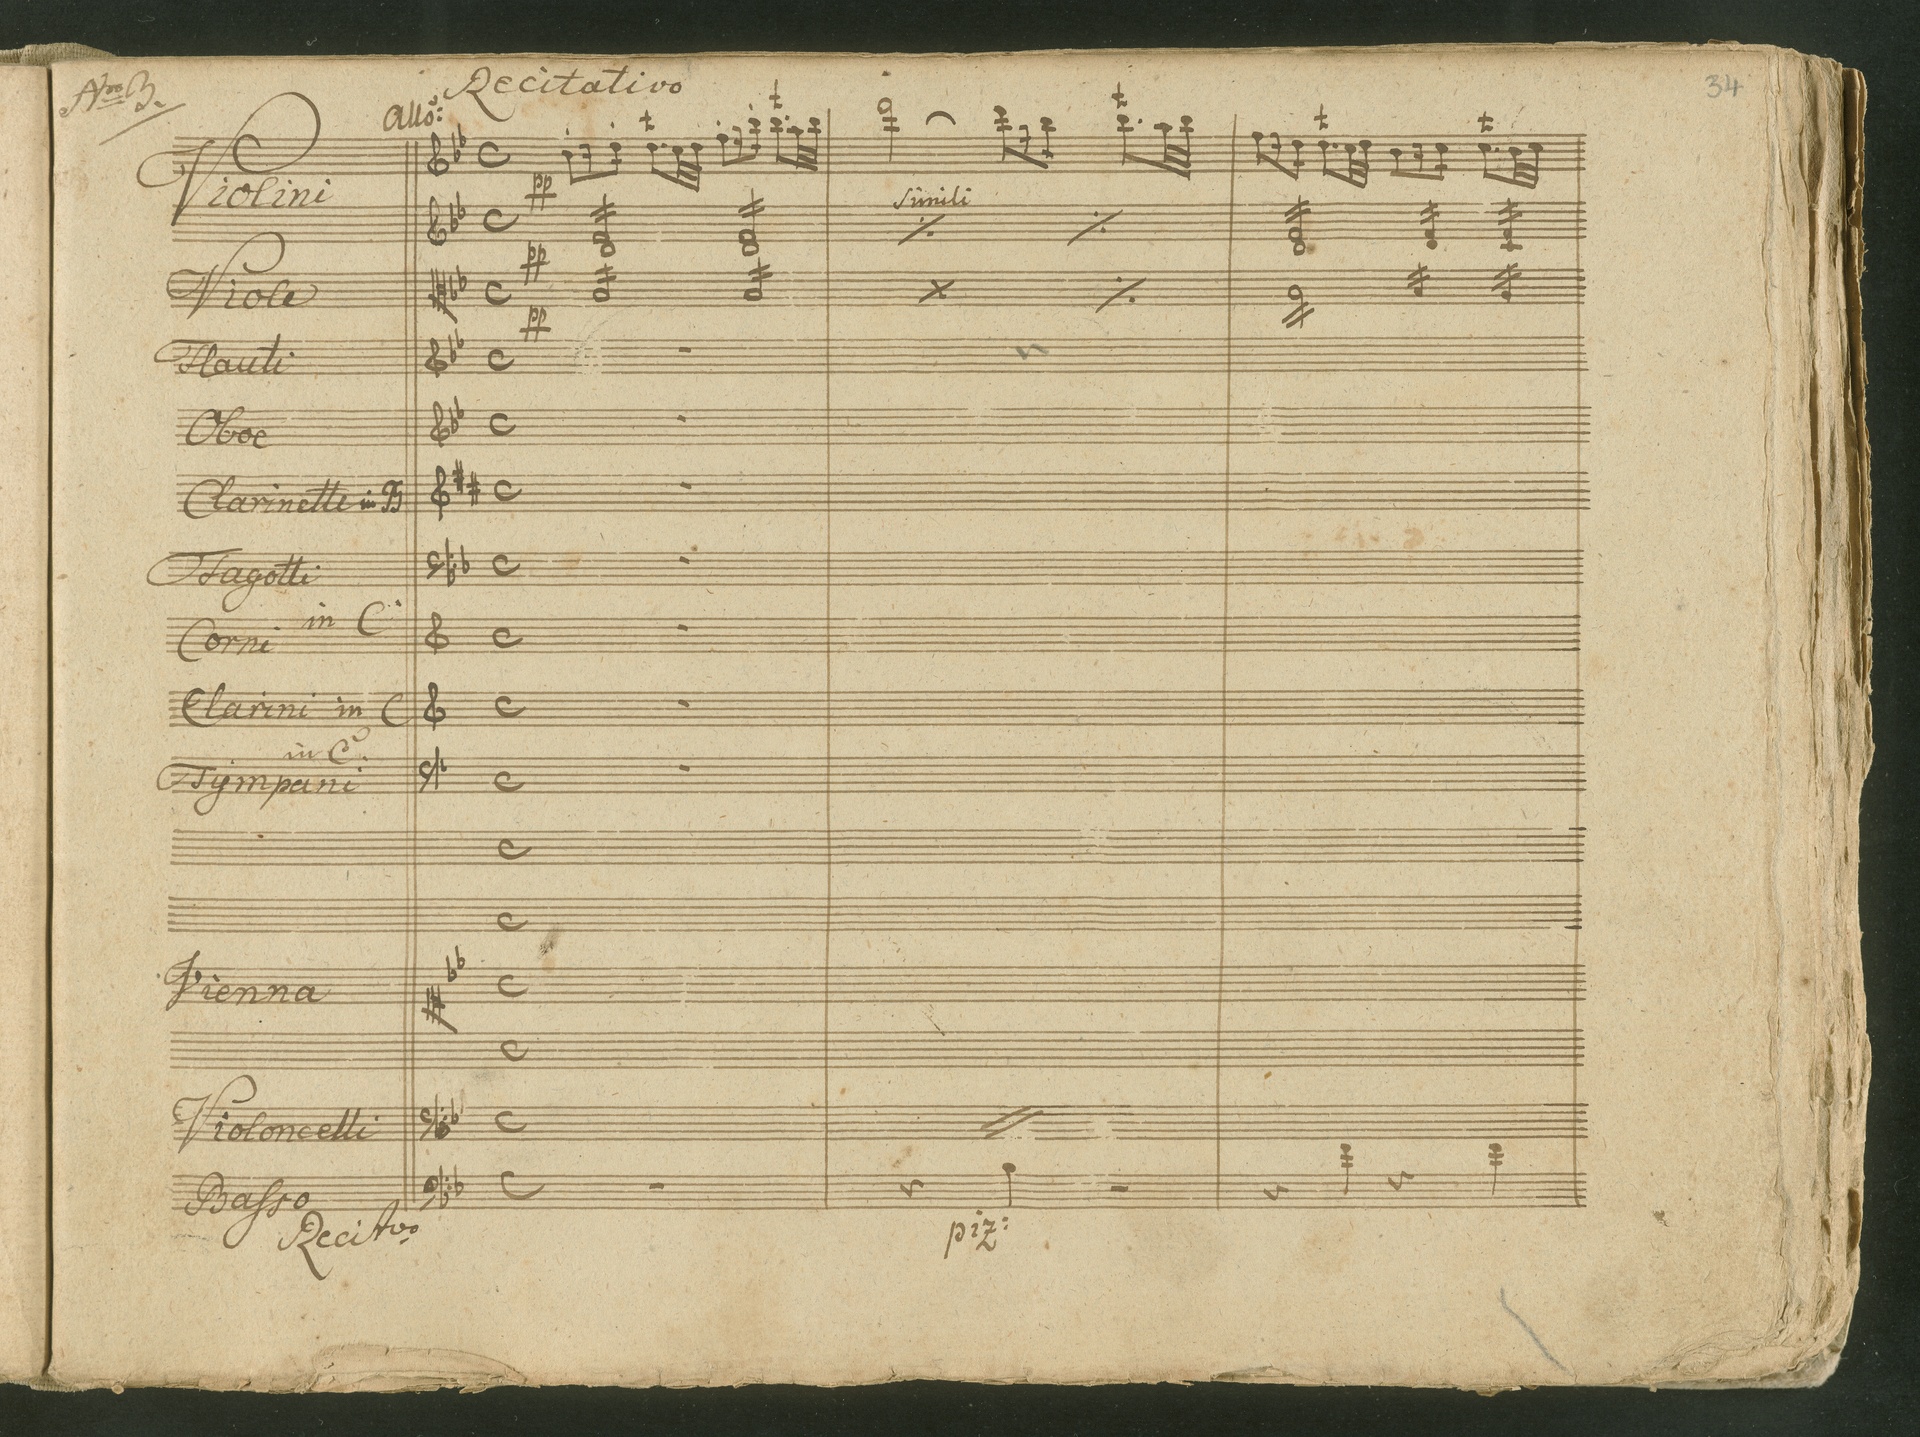 Nro 3.
Recitativo
34
Allo:
Violini
pp
simili
pp
Viole
pp
Flauti
Oboe
Clarinette in B
Fagotti
in C
Corni
Clarini in C
in C
Tÿmpani
Vienna
Violoncelli
Basso
piz:
Recitvo